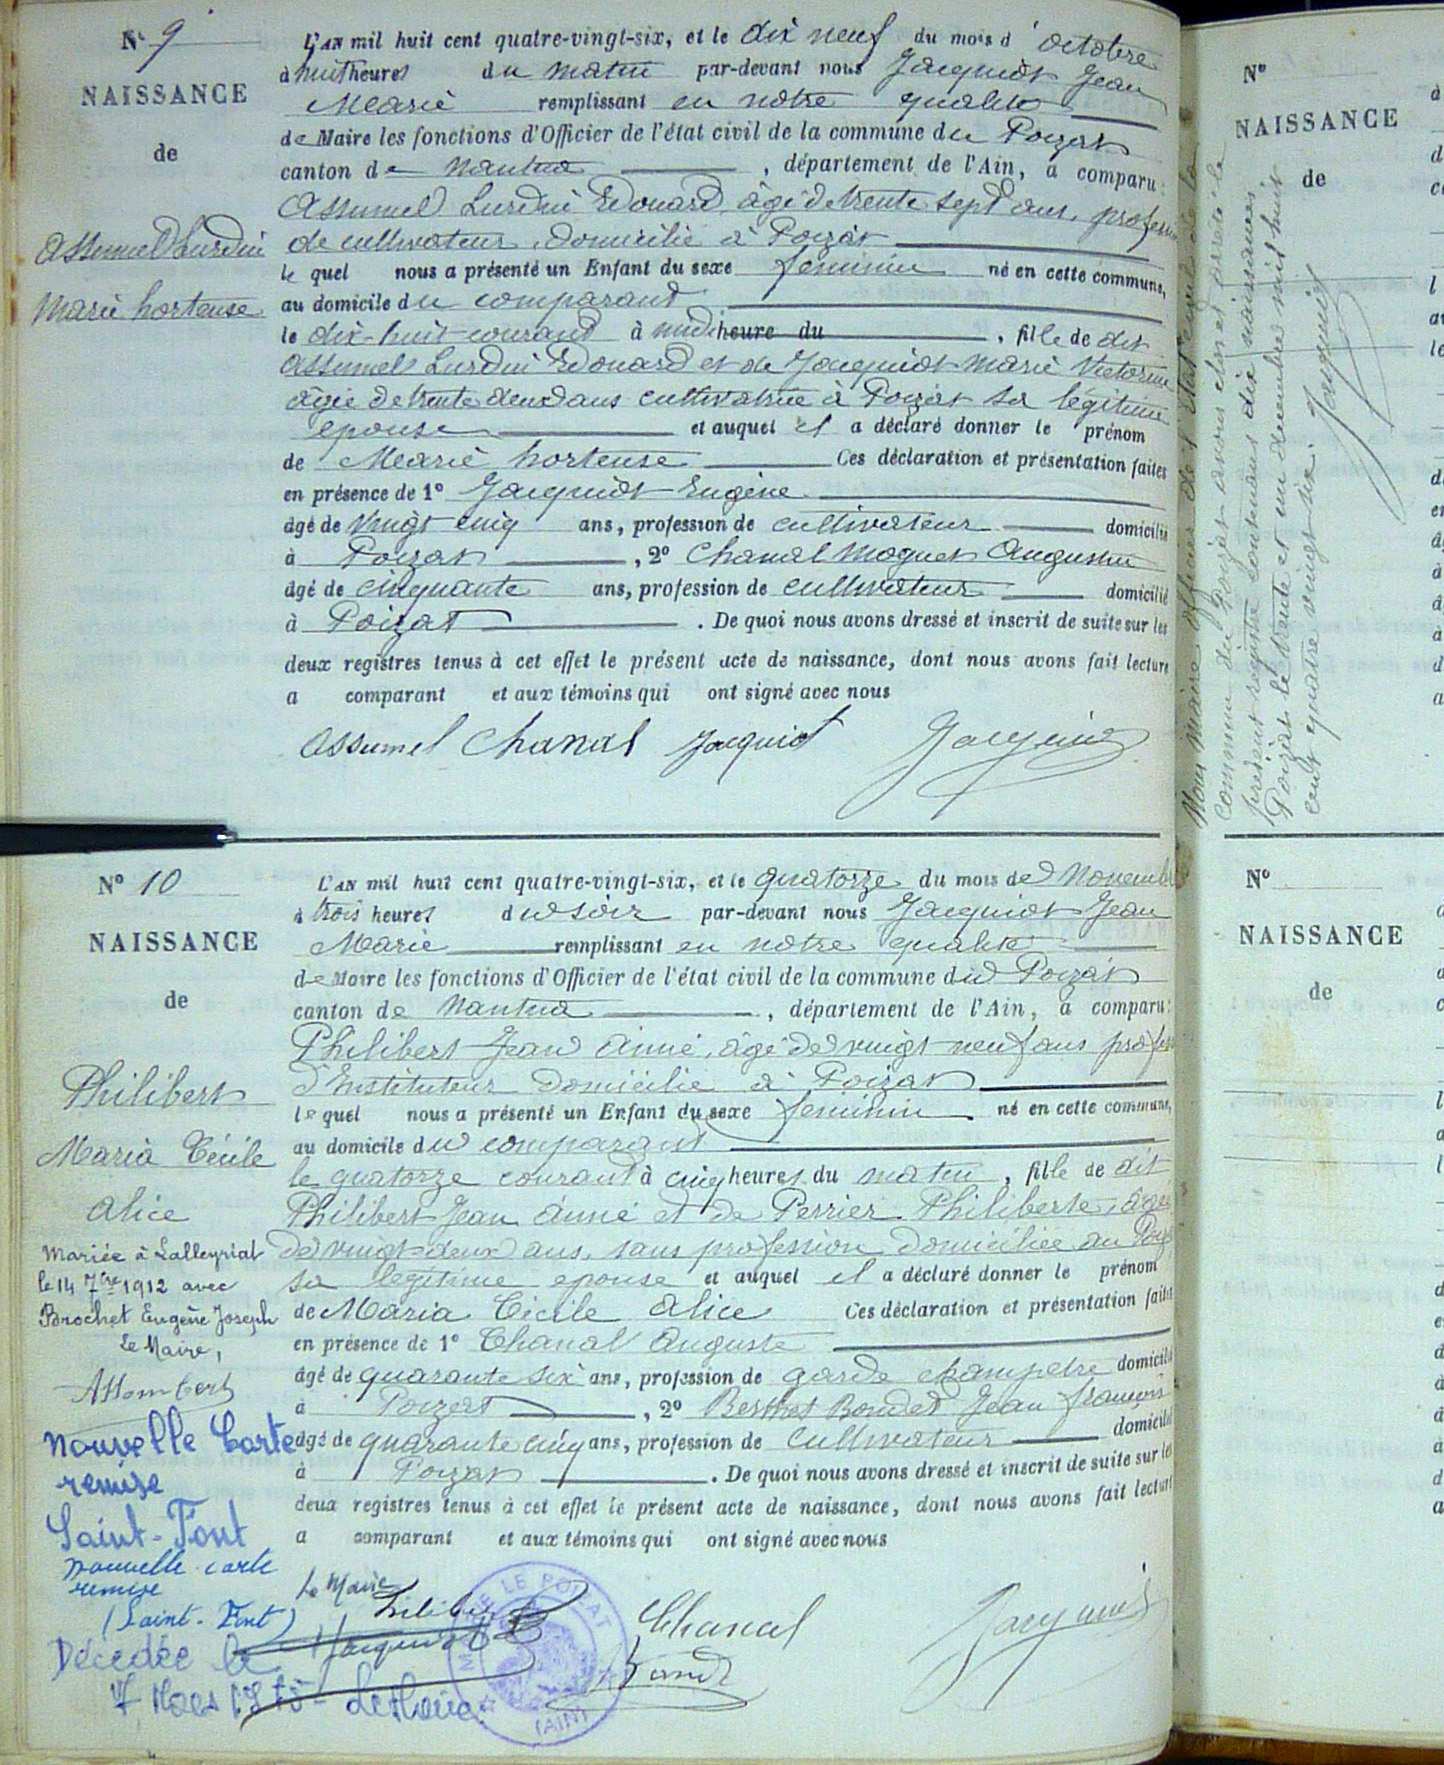 N° 9
NAISSANCE
de
Assumel Lurdin
Marie hortense
L'AN mil huit cent quatre-vingt-six, et le dix neuf du mois d'octobre
à huit heures du matin par-devant nous Jacquiot Jean
Marie remplissant en notre qualité
de Maire les fonctions d'Officier de l'état civil de la commune du Poizat
canton de Nantua, département de l'Ain, a comparu :
Assumel Lurdin Edouard, âgé de trente sept ans, profession
de cultivateur, domicilié à Poizat
lequel nous a présenté un Enfant du sexe féminin né en cette commune,
au domicile du comparant
le dix-huit courant à midi heure du , fille de dit
Assumel Lurdin Edouard et de Jacquiot Marie Victorine
âgée de trente deux ans cultivatrice à Poizat sa légitime
épouse et auquel il a déclaré donner le prénom
de Marie hortense Ces déclaration et présentation faites
en présence de 1° Jacquiot Eugène
âgé de vingt cinq ans, profession de cultivateur domicilié
à Poizat, 2° Chanal Moguet Augustin
âgé de cinquante ans, profession de cultivateur domicilié
à Poizat. De quoi nous avons dressé et inscrit de suite sur les
deux registres tenus à cet effet le présent acte de naissance, dont nous avons fait lecture
a comparant et aux témoins qui ont signé avec nous
Assumel Chanal Jacquiot Jacquiot
N° 10
NAISSANCE
de
Philibert
Maria Cécile
Alice
Mariée à Lalleyriat
le 14 7bre 1912 avec
Brochet Eugène Joseph
Le Maire,
Nouvelle Carte
remise
Saint-Font
nouvelle carte
remise
(Saint-Font)
Décédée le
7 Mars
Le Maire
L'AN mil huit cent quatre-vingt-six, et le quatorze du mois de Novembre
à trois heures du soir par-devant nous Jacquiot Jean
Marie remplissant en notre qualité
de Maire les fonctions d'Officier de l'état civil de la commune du Poizat
canton de Nantua, département de l'Ain, a comparu :
Philibert Jean Aimé, âgé de vingt neuf ans profession
d'Instituteur domicilié à Poizat
lequel nous a présenté un Enfant du sexe féminin né en cette commune,
au domicile du comparant
le quatorze courant à cinq heures du matin, fille de dit
Philibert Jean Aimé et de Perrier Philiberte, âgée
de vingt-deux ans, sans profession domiciliée au Poizat
sa légitime épouse et auquel il a déclaré donner le prénom
de Maria Cécile Alice Ces déclaration et présentation faites
en présence de 1° Chanal Auguste
âgé de quarante six ans, profession de garde champetre domicilié
à Poizat, 2° Berthet Bondet Jean françois
âgé de quarante cinq ans, profession de cultivateur domicilié
à Poizat. De quoi nous avons dressé et inscrit de suite sur les
deux registres tenus à cet effet le présent acte de naissance, dont nous avons fait lecture
a comparant et aux témoins qui ont signé avec nous
Le Maire
Philibert Chanal Jacquiot
Jacquiot
LE POIZAT
(AIN)
Nous maire officier de l'état civil de la
commune du Poizat avons clos et arrêté le
présent registre contenant dix naissances
Poizat le trente et un decembre mil huit
cent quatre vingt six.
Jacquiot
N°
NAISSANCE
de
N°
NAISSANCE
de